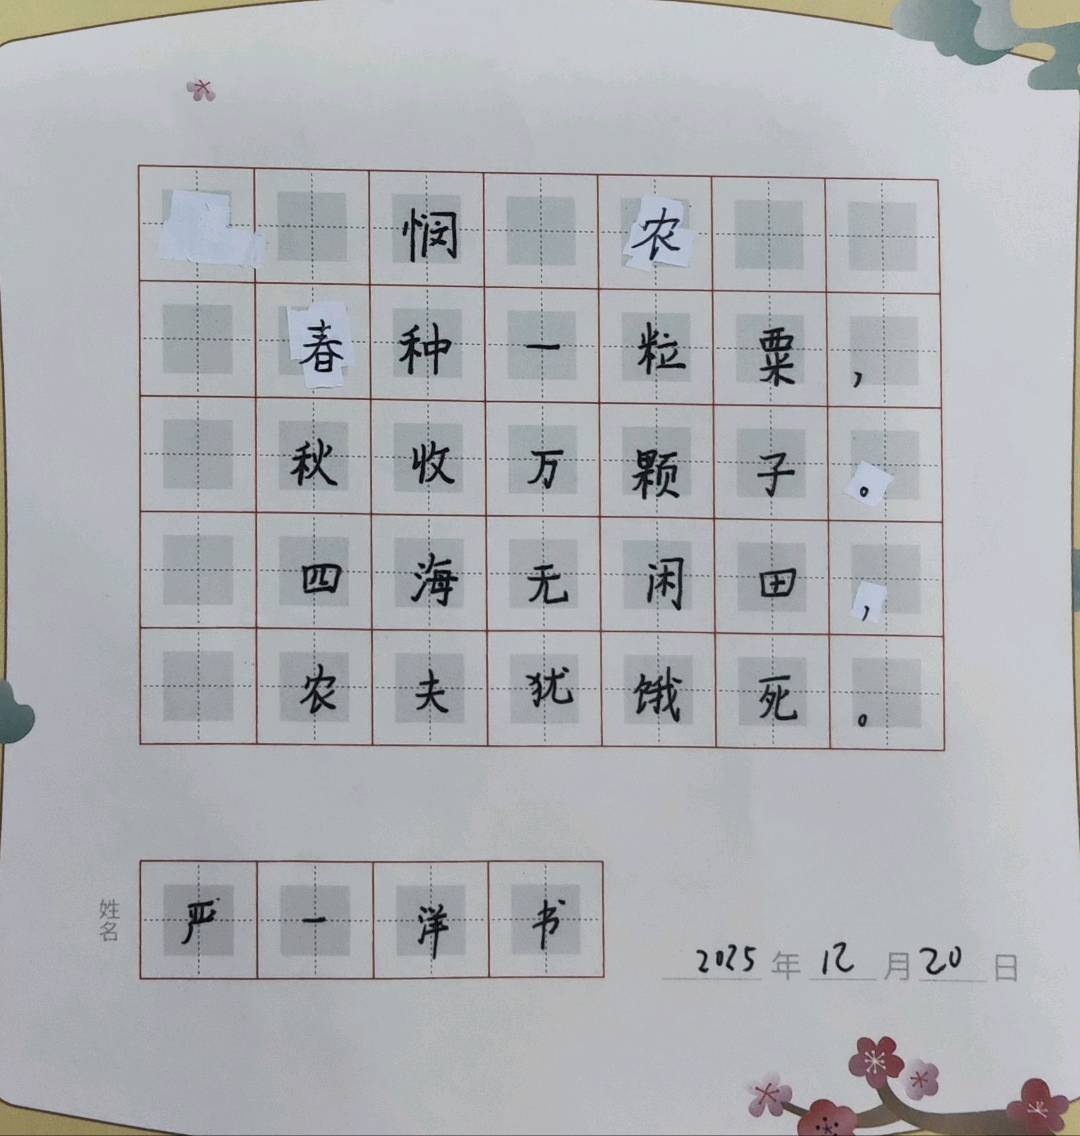 悯农
春种一粒粟，
秋收万颗子。
四海无闲田，
农夫犹饿死。
姓名 严一洋书
2025年12月20日